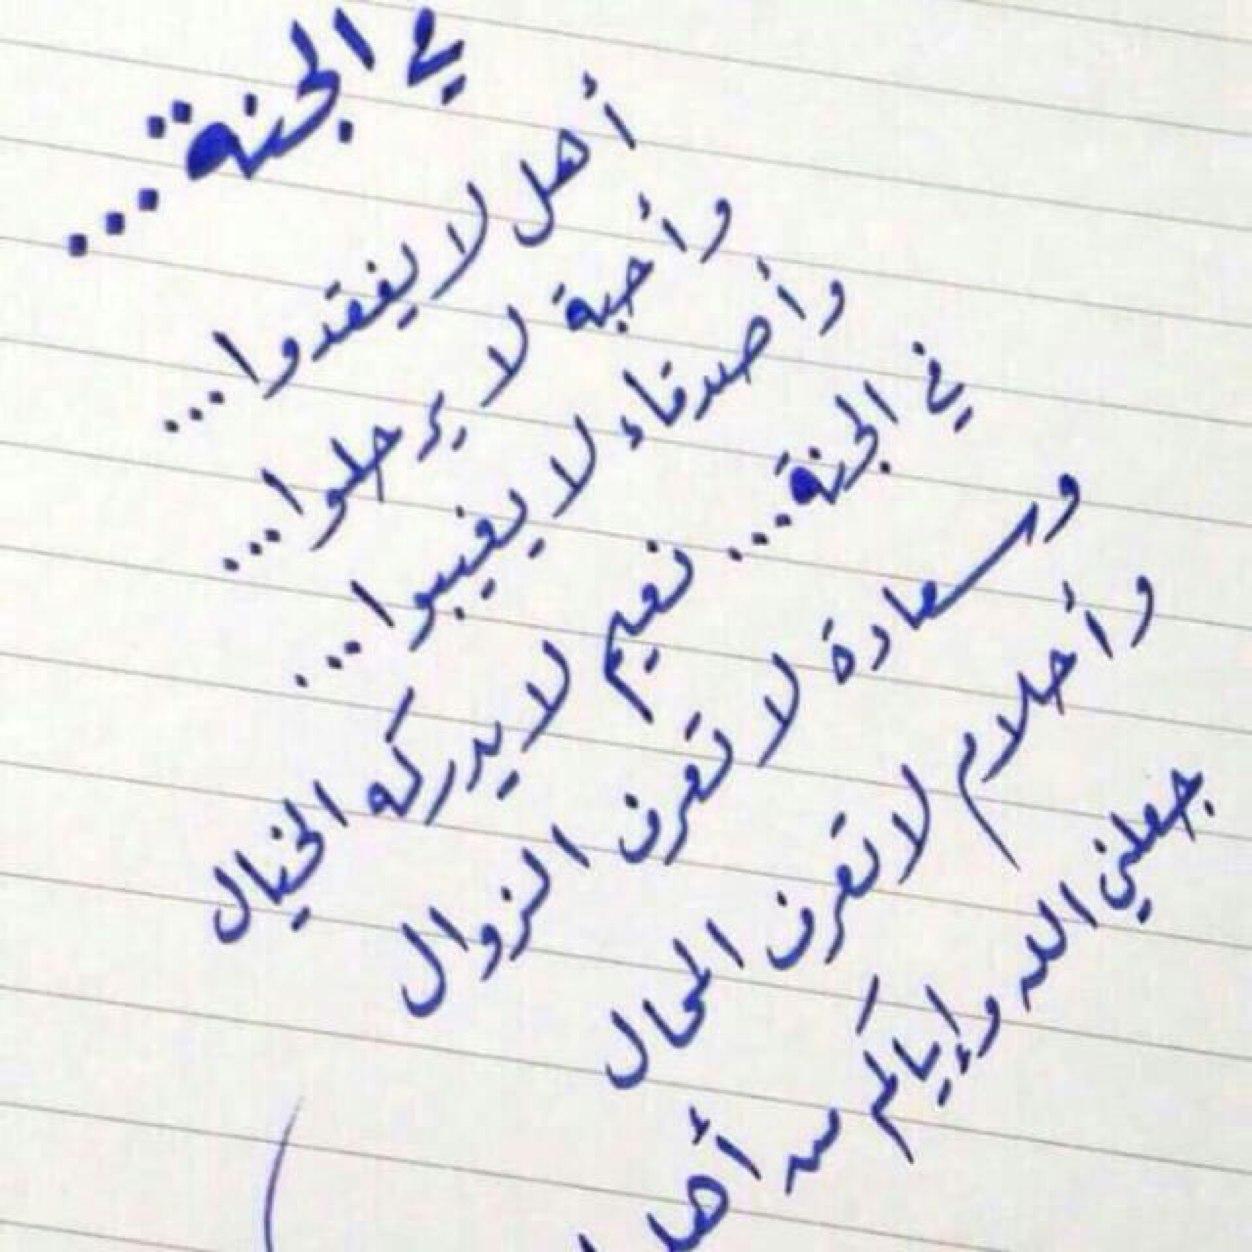 في الجنة...
أهل لا يفقدوا...
وأحبة لا يرحلوا...
وأصدقاء لا يغيبوا...
في الجنة...
نعيم لا يدركه الخيال
وسعادة لا تعرف الزوال
وأحلام لا تعرف المحال
جعلني الله وإياكم من